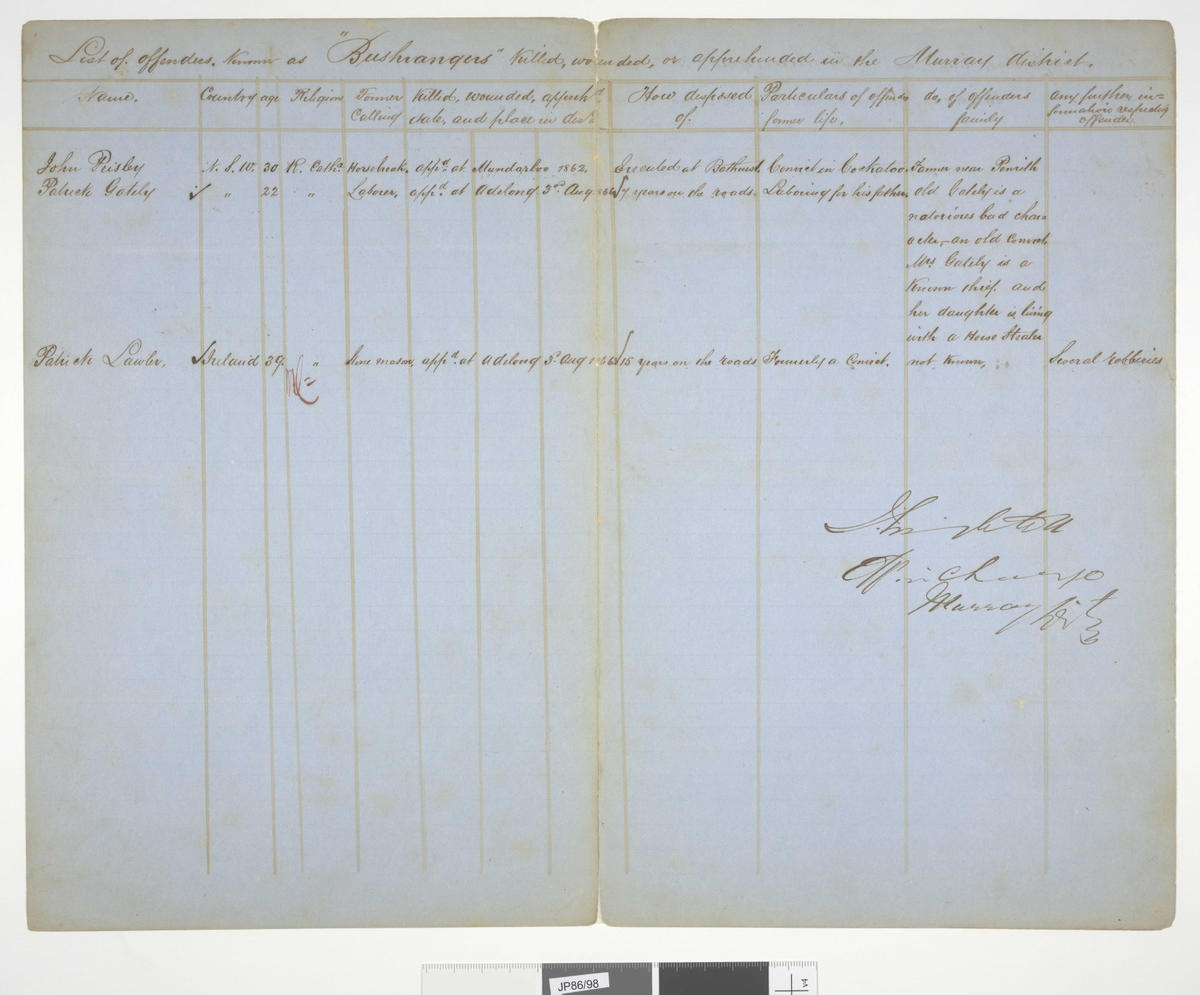 List of offenders, Known as "Bushrangers" Killed, wounded, or apprehended in the Murray district.
Name. Country age Religion Former Calling Killed, wounded, appreh.d date, and place in dist. How disposed of. Particulars of offenders former life. do, of offenders family any further information respecting offender.
John Peisley N. S. W. 30 R. Cath. Horsebreak. app.d at Mundarloo 1862. Executed at Bathurst. Convict in Cockatoo Farmer near Penrith
Patrick Gately " 22 " Laborer, app.d at Adelong 3.d Aug 1863 7 years on the roads. Laboring for his father. old Gately is a
notorious bad char=
acter, an old convict.
Mrs Gately is a
Known thief. and
her daughter is living
with a Horse Stealer
Patrick Lawler, Ireland 39 " Stone mason, app.d at Adelong 3.d Aug 1863 15 years on the roads Formerly a Convict. not Known, Several robberies
Off. in charge
Murray Dist.
JP86/98